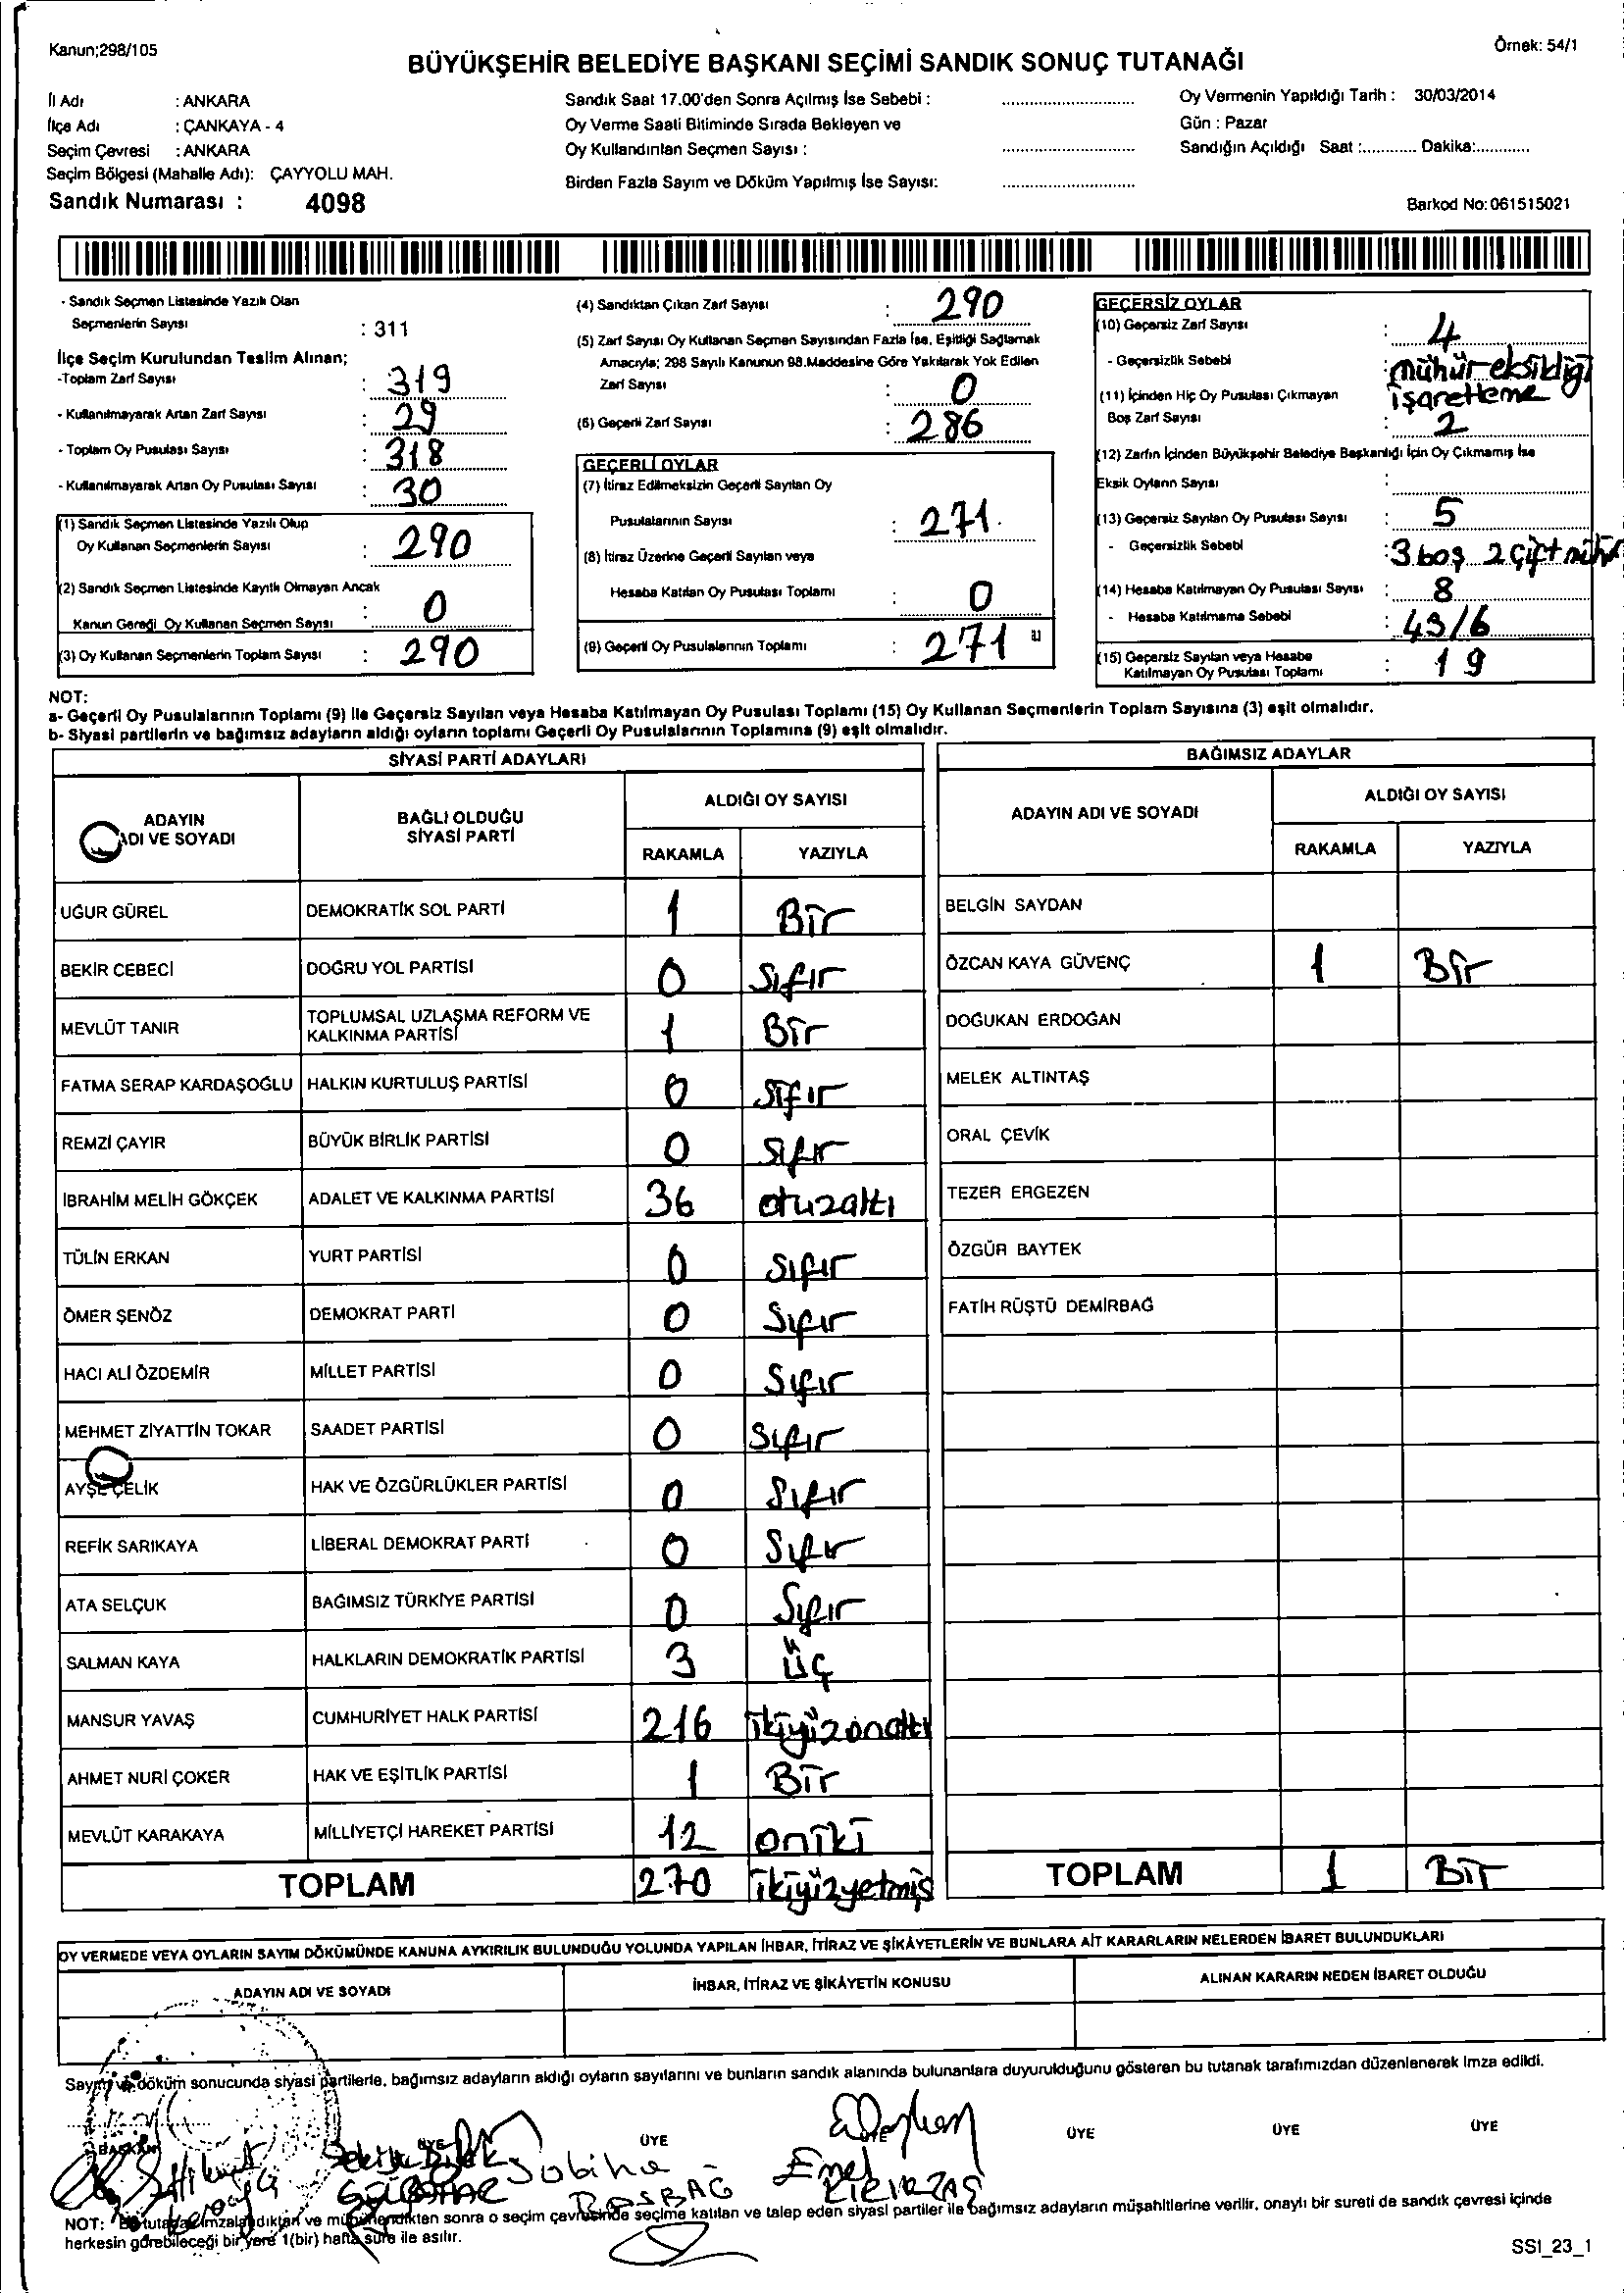 Kanun;298/105
Örnek: 54/1
BÜYÜKŞEHİR BELEDİYE BAŞKANI SEÇİMİ SANDIK SONUÇ TUTANAĞI
İl Adı : ANKARA
İlçe Adı : ÇANKAYA - 4
Seçim Çevresi : ANKARA
Seçim Bölgesi (Mahalle Adı): ÇAYYOLU MAH.
Sandık Numarası : 4098
Sandık Saat 17.00'den Sonra Açılmış İse Sebebi :
Oy Verme Saati Bitiminde Sırada Bekleyen ve
Oy Kullandırılan Seçmen Sayısı :
Birden Fazla Sayım ve Döküm Yapılmış İse Sayısı:
Oy Vermenin Yapıldığı Tarih : 30/03/2014
Gün : Pazar
Sandığın Açıldığı Saat :............ Dakika:............
Barkod No: 061515021
- Sandık Seçmen Listesinde Yazılı Olan
Seçmenlerin Sayısı : 311
İlçe Seçim Kurulundan Teslim Alınan;
-Toplam Zarf Sayısı : 319
- Kullanılmayarak Artan Zarf Sayısı : 29
- Toplam Oy Pusulası Sayısı : 318
- Kullanılmayarak Artan Oy Pusulası Sayısı : 30
(1) Sandık Seçmen Listesinde Yazılı Olup
Oy Kullanan Seçmenlerin Sayısı : 290
(2) Sandık Seçmen Listesinde Kayıtlı Olmayan Ancak
Kanun Gereği Oy Kullanan Seçmen Sayısı : 0
(3) Oy Kullanan Seçmenlerin Toplam Sayısı : 290
(4) Sandıktan Çıkan Zarf Sayısı : 290
(5) Zarf Sayısı Oy Kullanan Seçmen Sayısından Fazla İse, Eşitliği Sağlamak
Amacıyla; 298 Sayılı Kanunun 98.Maddesine Göre Yakılarak Yok Edilen
Zarf Sayısı : 0
(6) Geçerli Zarf Sayısı : 286
GEÇERLİ OYLAR
(7) İtiraz Edilmeksizin Geçerli Sayılan Oy
Pusulalarının Sayısı : 271
(8) İtiraz Üzerine Geçerli Sayılan veya
Hesaba Katılan Oy Pusulası Toplamı : 0
(9) Geçerli Oy Pusulalarının Toplamı : 271
GEÇERSİZ OYLAR
(10) Geçersiz Zarf Sayısı : 4
- Geçersizlik Sebebi : mühür eksikliği
işaretleme
(11) İçinden Hiç Oy Pusulası Çıkmayan
Boş Zarf Sayısı : 2
(12) Zarfın İçinden Büyükşehir Belediye Başkanlığı İçin Oy Çıkmamış İse
Eksik Oyların Sayısı :
(13) Geçersiz Sayılan Oy Pusulası Sayısı : 5
- Geçersizlik Sebebi : 3 boş 2 çift mühür
(14) Hesaba Katılmayan Oy Pusulası Sayısı : 8
- Hesaba Katılmama Sebebi : 43/6
(15) Geçersiz Sayılan veya Hesaba
Katılmayan Oy Pusulası Toplamı : 19
NOT:
a- Geçerli Oy Pusulalarının Toplamı (9) ile Geçersiz Sayılan veya Hesaba Katılmayan Oy Pusulası Toplamı (15) Oy Kullanan Seçmenlerin Toplam Sayısına (3) eşit olmalıdır.
b- Siyasi partilerin ve bağımsız adayların aldığı oyların toplamı Geçerli Oy Pusulalarının Toplamına (9) eşit olmalıdır.
SİYASİ PARTİ ADAYLARI
ADAYIN ADI VE SOYADI
BAĞLI OLDUĞU SİYASİ PARTİ
ALDIĞI OY SAYISI
RAKAMLA YAZIYLA
UĞUR GÜREL DEMOKRATİK SOL PARTİ 1 Bir
BEKİR CEBECİ DOĞRU YOL PARTİSİ 0 Sıfır
MEVLÜT TANIR TOPLUMSAL UZLAŞMA REFORM VE KALKINMA PARTİSİ 1 Bir
FATMA SERAP KARDAŞOĞLU HALKIN KURTULUŞ PARTİSİ 0 Sıfır
REMZİ ÇAYIR BÜYÜK BİRLİK PARTİSİ 0 Sıfır
İBRAHİM MELİH GÖKÇEK ADALET VE KALKINMA PARTİSİ 36 otuzaltı
TÜLİN ERKAN YURT PARTİSİ 0 Sıfır
ÖMER ŞENÖZ DEMOKRAT PARTİ 0 Sıfır
HACI ALİ ÖZDEMİR MİLLET PARTİSİ 0 Sıfır
MEHMET ZİYATTİN TOKAR SAADET PARTİSİ 0 Sıfır
AYŞE ÇELİK HAK VE ÖZGÜRLÜKLER PARTİSİ 0 Sıfır
REFİK SARIKAYA LİBERAL DEMOKRAT PARTİ 0 Sıfır
ATA SELÇUK BAĞIMSIZ TÜRKİYE PARTİSİ 0 Sıfır
SALMAN KAYA HALKLARIN DEMOKRATİK PARTİSİ 3 üç
MANSUR YAVAŞ CUMHURİYET HALK PARTİSİ 216 ikiyüzonaltı
AHMET NURİ ÇOKER HAK VE EŞİTLİK PARTİSİ 1 Bir
MEVLÜT KARAKAYA MİLLİYETÇİ HAREKET PARTİSİ 12 oniki
TOPLAM 270 ikiyüzyetmiş
BAĞIMSIZ ADAYLAR
ADAYIN ADI VE SOYADI
ALDIĞI OY SAYISI
RAKAMLA YAZIYLA
BELGİN SAYDAN
ÖZCAN KAYA GÜVENÇ 1 Bir
DOĞUKAN ERDOĞAN
MELEK ALTINTAŞ
ORAL ÇEVİK
TEZER ERGEZEN
ÖZGÜR BAYTEK
FATİH RÜŞTÜ DEMİRBAĞ
TOPLAM 1 Bir
OY VERMEDE VEYA OYLARIN SAYIM DÖKÜMÜNDE KANUNA AYKIRILIK BULUNDUĞU YOLUNDA YAPILAN İHBAR, İTİRAZ VE ŞİKÂYETLERİN VE BUNLARA AİT KARARLARIN NELERDEN İBARET BULUNDUKLARI
ADAYIN ADI VE SOYADI
İHBAR, İTİRAZ VE ŞİKÂYETİN KONUSU
ALINAN KARARIN NEDEN İBARET OLDUĞU
Sayım ve döküm sonucunda siyasi partilerle, bağımsız adayların aldığı oyların sayılarını ve bunların sandık alanında bulunanlara duyurulduğunu gösteren bu tutanak tarafımızdan düzenlenerek imza edildi.
BAŞKAN ÜYE ÜYE ÜYE ÜYE ÜYE ÜYE
Sabiha
BASBAĞ
Emel
NOT: Bu tutanak imzalandıktan ve mühürlendikten sonra o seçim çevresinde seçime katılan ve talep eden siyasi partiler ile bağımsız adayların müşahitlerine verilir, onaylı bir sureti de sandık çevresi içinde
herkesin görebileceği bir yere 1(bir) hafta süre ile asılır.
SSI_23_1